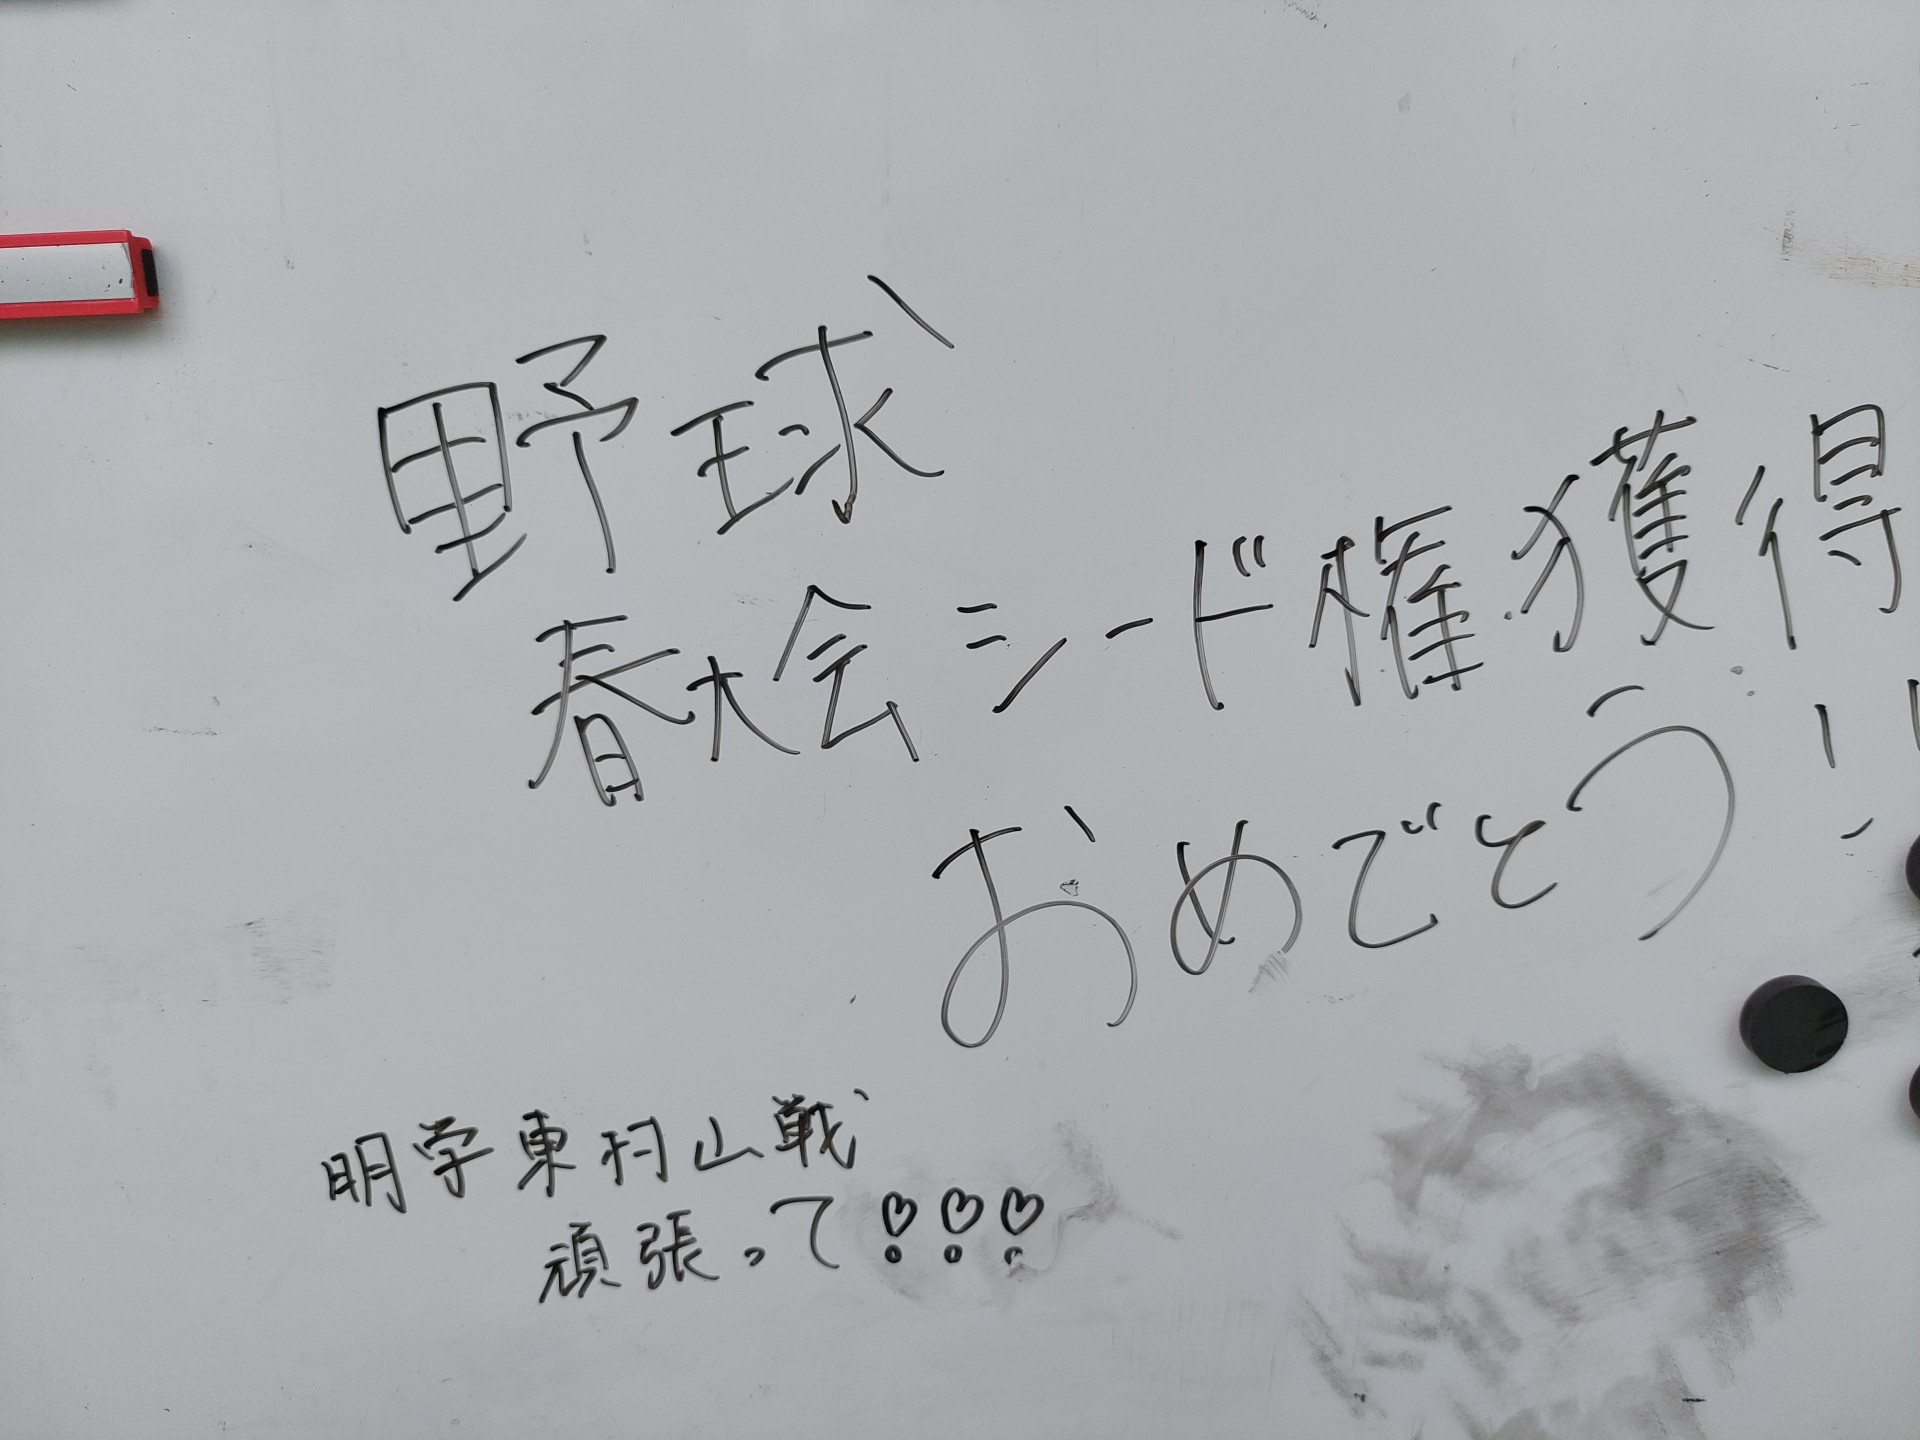 野球
春大会シード権獲得
おめでとう!!
明学東村山戦
頑張って!!!